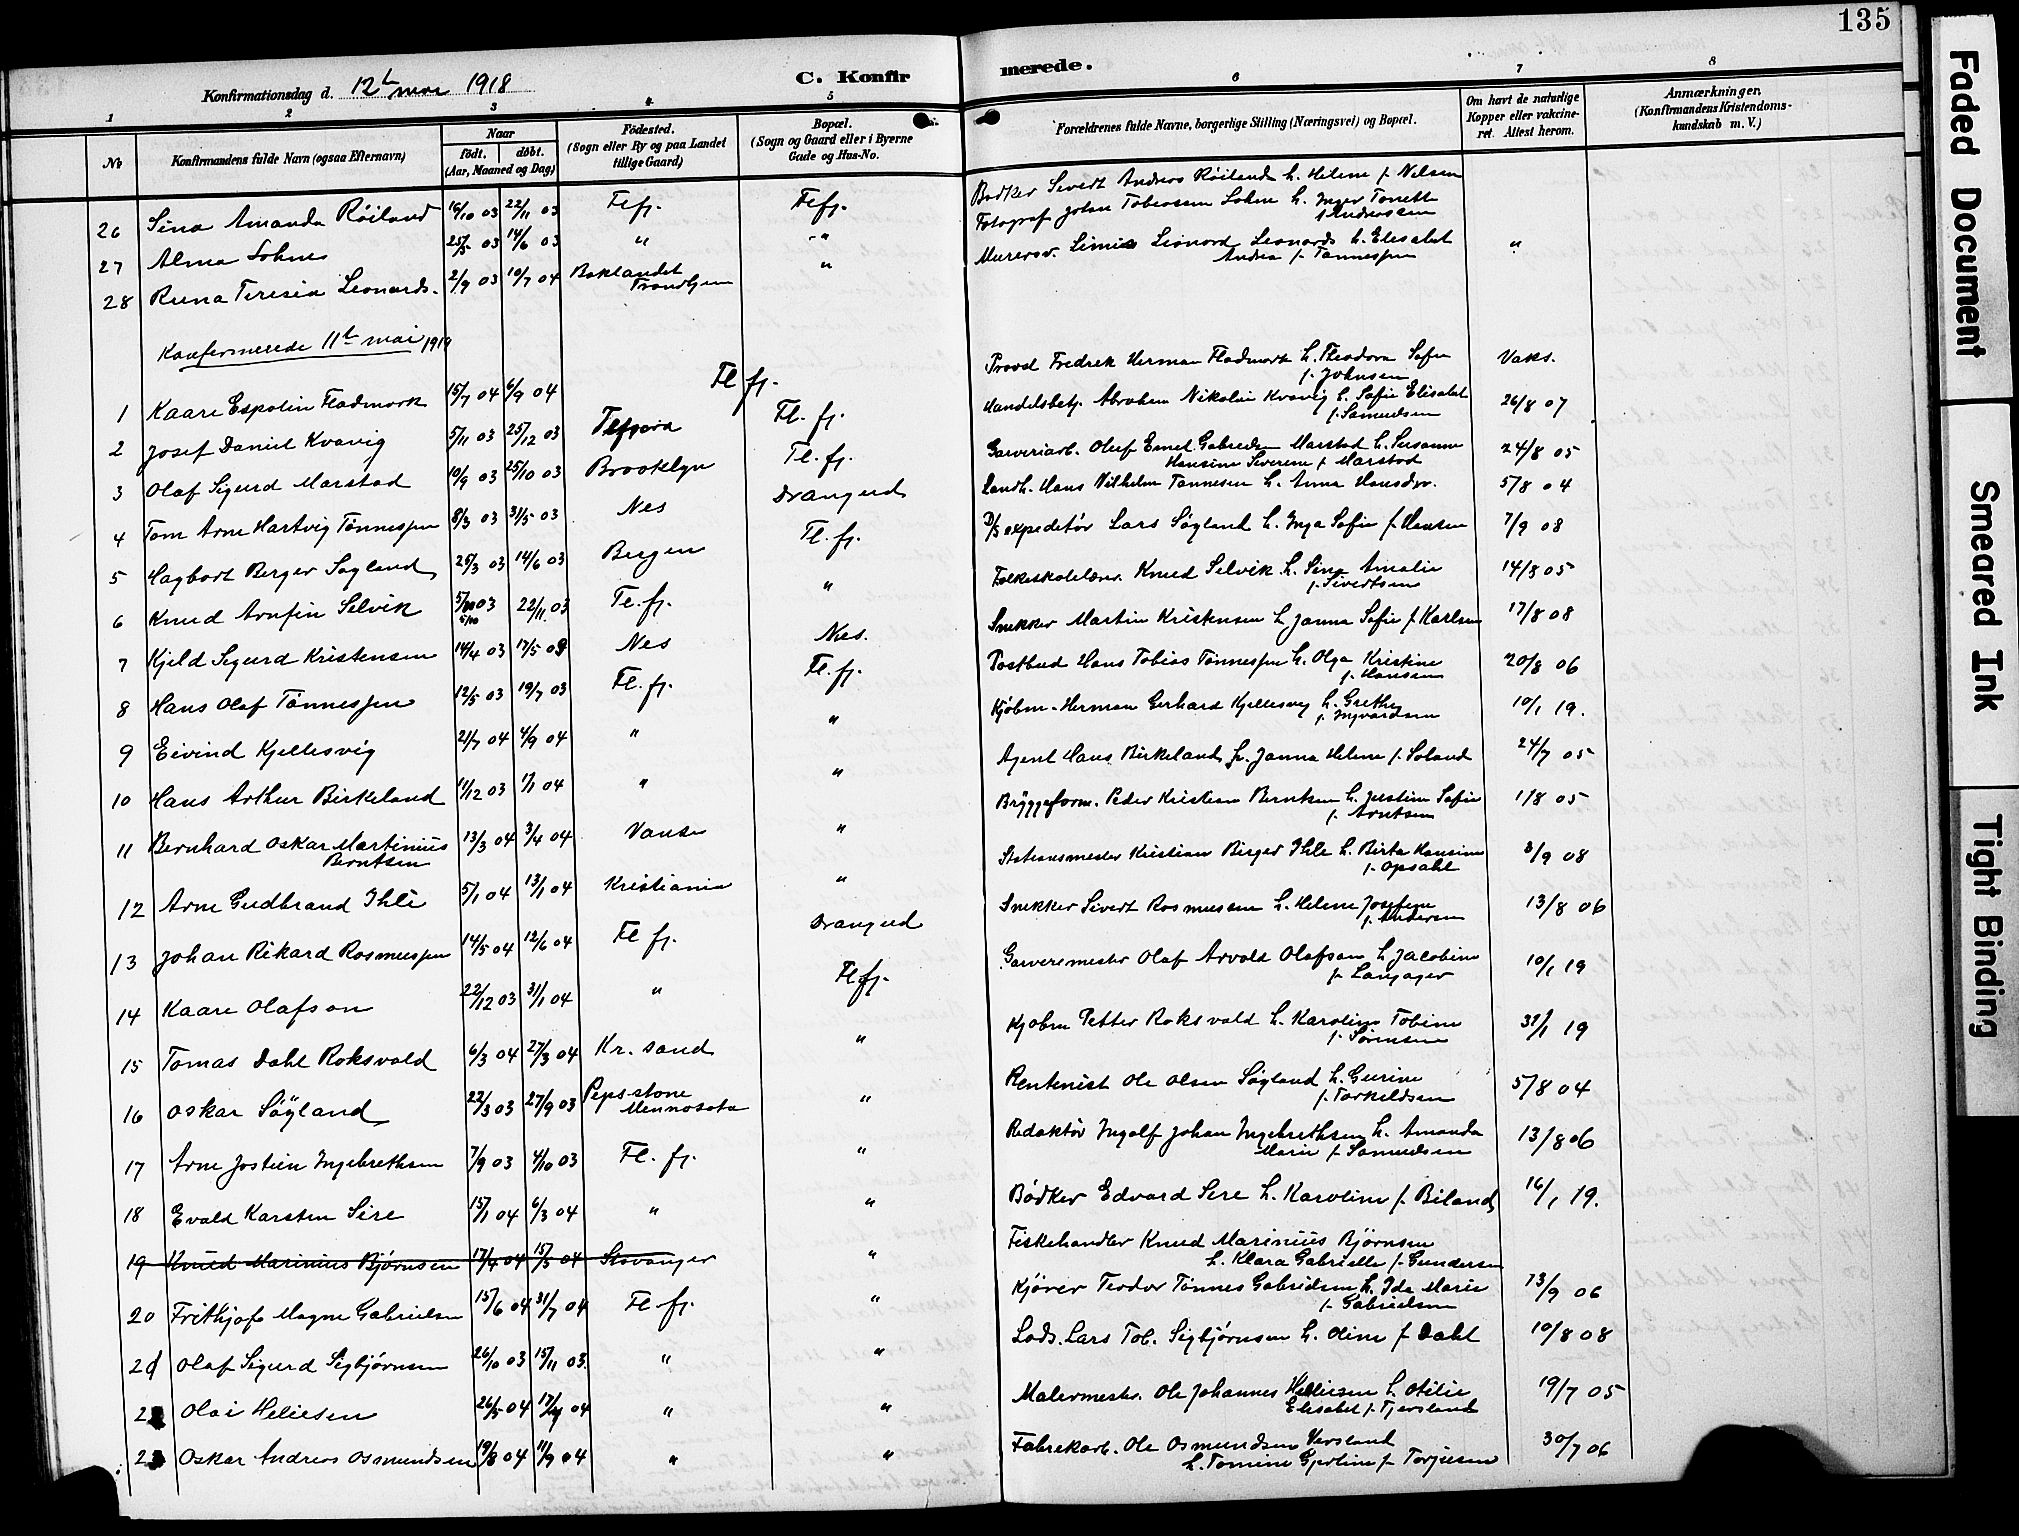 135
C. Konfirmerede.
Konfirmationsdag d. 12te mai 1918
1 2 3 4 5 6 7 8
No
Konfirmandens fulde Navn (ogsaa Efternavn)
Naar
født. døbt.
(Aar, Maaned og Dag)
Fødested.
(Sogn eller By og paa Landet
tillige Gaard)
Bopæl.
(Sogn og Gaard eller i Byerne
Gade og Hus-No.
Forældrenes fulde Navne, borgerlige Stilling (Næringsvei) og Bopæl.
Om havt de naturlige
Kopper eller vakcineret.
Attest herom.
Anmærkninger.
(Konfirmandens Kristendomskundskab
m. V.)
26 Sina Amanda Röiland 16/10 03 22/11 03 Flfj. Flfj. Bødker Sivert Andreas Röiland h. Helene f. Nilsen
27 Alma Lohne 25/5 03 14/6 03 " " Fotograf Johan Tobiassen Lohne h. Inger Tonette f. Andreassen
28 Runa Teresia Leonards. 2/9 03 10/7 04 Baklandet Trondhjem " Murersv. Leonard Leonards h. Elisabet Andrea f. Tønnessen "
Konfermerede 11te mai 1919
1 Kaare Espolin Fladmork 15/7 04 6/9 04 Fl fj. Provst Fredrek Herman Fladmork h. Theodora Sofie f. Johnsen Vaks.
2 Josef Daniel Kvavig 5/11 03 25/12 03 Fl. fj. Handelsbetj. Abraham Nikolai Kvavig h. Sofie Elisabet f. Samuelsen 26/8 07
3 Olaf Sigurd Marstad 10/9 03 25/10 03 Brooklyn Fl. fj. Garveriarb. Oluf Emil Gabrielsen Marstad h. Susanne Hansine Severine f. Marstad 24/8 05
4 Tom Arne Hartvig Tønnessen 8/3 03 31/5 03 Nes Drangeid Landh. Hans Vilhelm Tønnesen h. Anna Hansdtr. 5/8 04
5 Hagbart Berger Søyland 25/3 03 14/6 03 Bergen Fl. fj. D/S expeditør Lars Søyland h. Inga Sofie f. Hansen 7/9 08
6 Knud Arnfin Selvik 22/11 03 Fl. fj. " Folkeskolelærer Knud Selvik h. Sina Amalie f. Sivertsen 14/8 05
7 Kjeld Sigurd Kristensen 14/4 03 17/5 03 Nes Nes. Snekker Martin Kristensen h. Janna Sofie f. Karlsen 17/8 08
8 Hans Olaf Tønnessen 12/5 03 19/7 03 Fl. fj. Fl. fj. Postbud Hans Tobias Tønnessen h. Olga Kristine f. Hansen 20/8 06
9 Eivind Kjellesvig 21/7 04 4/9 04 " " Kjøbm. Herman Gerhard Kjellesvig h. Grethe f. Ingvardsen 10/1 19.
10 Hans Arthur Birkeland 11/12 03 1/1 04 " " Agent Hans Birkeland h. Janna Helene f. Soland 24/7 05
11 Bernhard Oskar Martinius Berntsen 13/3 04 3/4 04 Vanse " Bryggeform. Peder Kristian Berntsen h. Justine Sofie f. Arntsen 1/8 05
12 Arne Gudbrand Ihle 5/1 04 13/1 04 Kristiania " Stationsmester Kristian Birger Ihle h. Birta Hansine f. Opsahl 3/9 08
13 Johan Rikard Rasmussen 14/5 04 12/6 04 Fl fj. Drangeid Snekker Sivert Rasmussen h. Helene Josefine f. Andersen 13/8 06
14 Kaare Olafson 22/12 03 31/1 04 " Fl fj. Garvermester Olaf Arvald Olafson h. Jacobine f. Langager 10/1 19
15 Tomas Dahl Roksvold 6/3 04 27/3 04 Kr. sand " Kjøbm Petter Roksvald h. Karoline Tobine f. Sørensen 31/1 19
16 Oskar Søyland 22/3 03 27/9 03 Pepsstone Mennosota " Rentenist Ole Olsen Søyland h. Gurine f. Torkeldsen 5/8 04
17 Arne Jostein Ingebrethsen 7/9 03 4/10 03 Fl. fj. " Redaktør Ingolf Johan Ingebrethsen h. Amanda Marie f. Samuelsen 13/8 06
18 Evald Karsten Sire 15/1 04 6/3 04 " " Bødker Edvard Sire h. Karoline f. Biland 16/1 19.
19 Knud Marinius Bjørnsen 17/4 04 15/5 04 Stavanger " Fiskehandler Knud Marinius Bjørnsen h. Klara Gabrielle f. Gundersen
20 Frithjof Magne Gabrielsen 15/6 04 31/7 04 Fl. fj. " Kjører Teodor Tønnes Gabrielsen h. Ida Marie f. Gabrielsen 13/9 06
21 Olaf Sigurd Sigbjørnsen 26/10 03 15/11 03. " " Lods. Lars Tob. Sigbjørnsen h. Oline f. Dahl 10/8 08
2 Olai Heliesen 26/5 04 " " Malermester. Ole Johannes Heliesen h. Otilie Elisabet f. Tjersland 19/7 05
2 Oskar Andreas Osmundsen 19/8 04 11/9 04 " " Fabrekarb. Ole Osmundsen Versland h. Tomine Gjertine f. Torjusen 30/7 06
Faded Document
Smeared Ink
Tight Binding